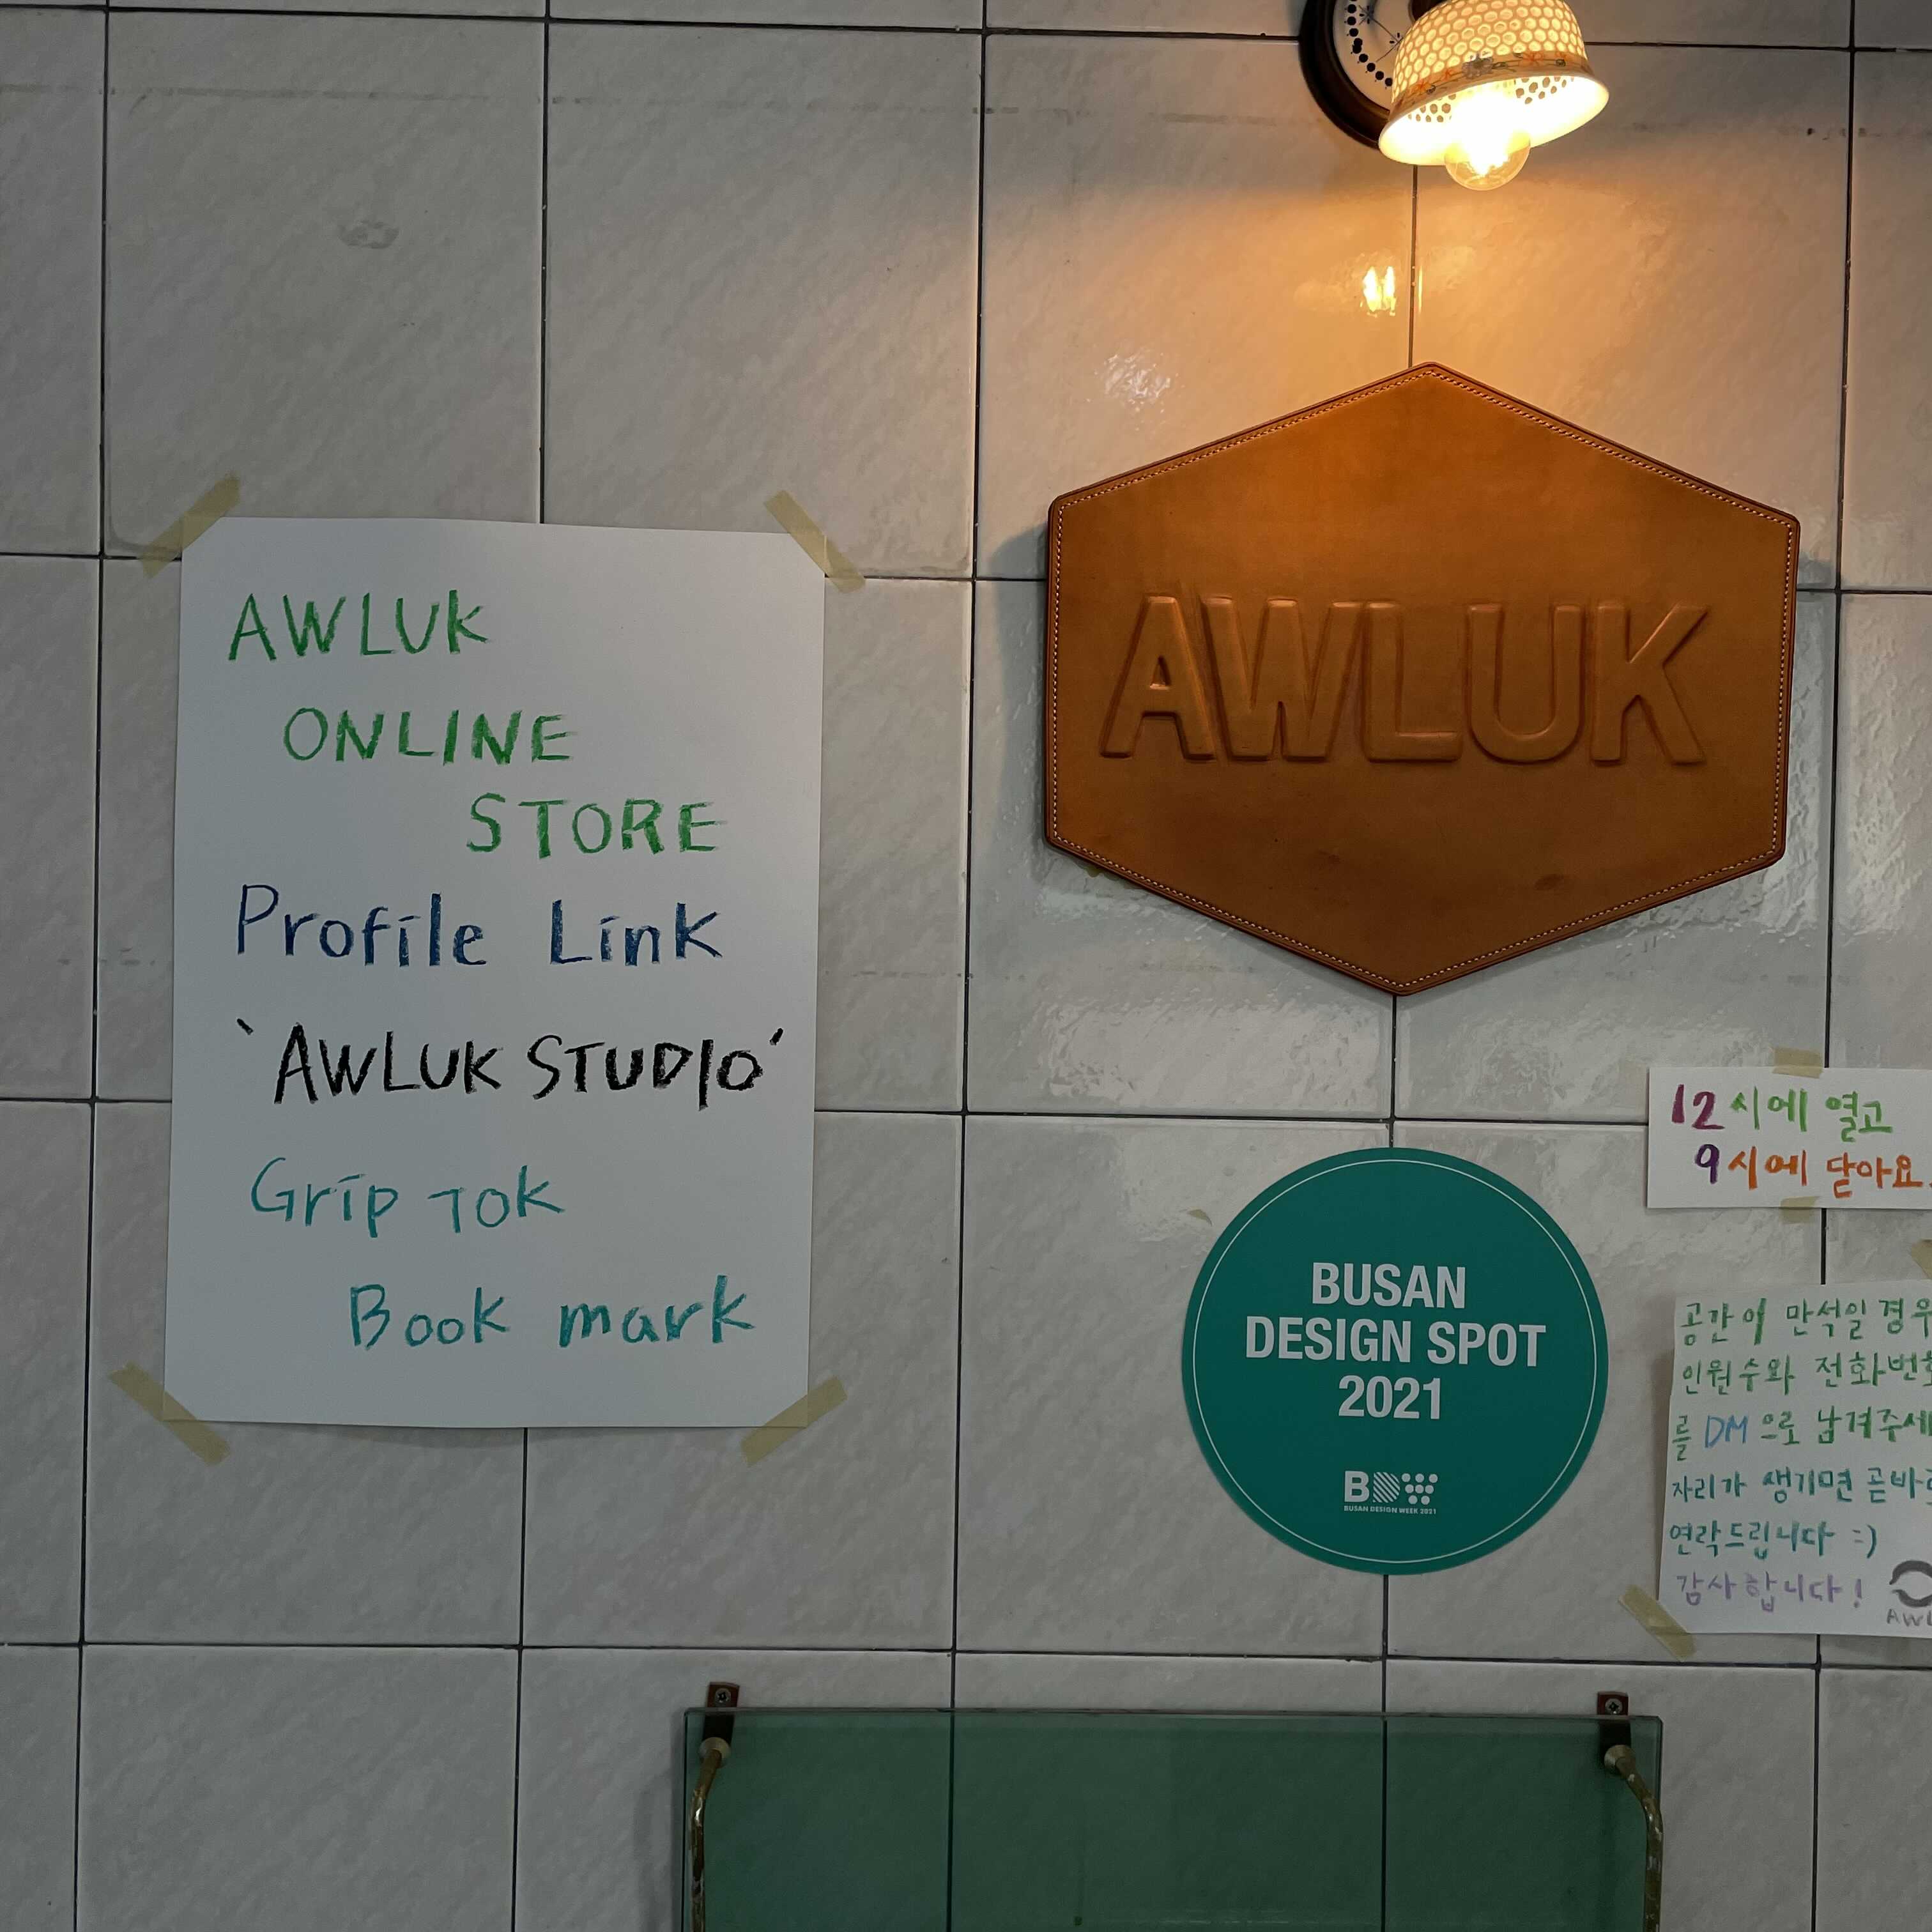 AWLUK
ONLINE
STORE
Profile Link
'AWLUK STUDIO'
Grip Tok
Book mark
AWLUK
BUSAN
DESIGN SPOT
2021
BUSAN DESIGN WEEK 2021
12시에 열고
9시에 닫아요.
공간이 만석일 경우
인원수와 전화번호
를 DM으로 남겨주세
자리가 생기면 곧바로
연락드립니다 =)
감사합니다!